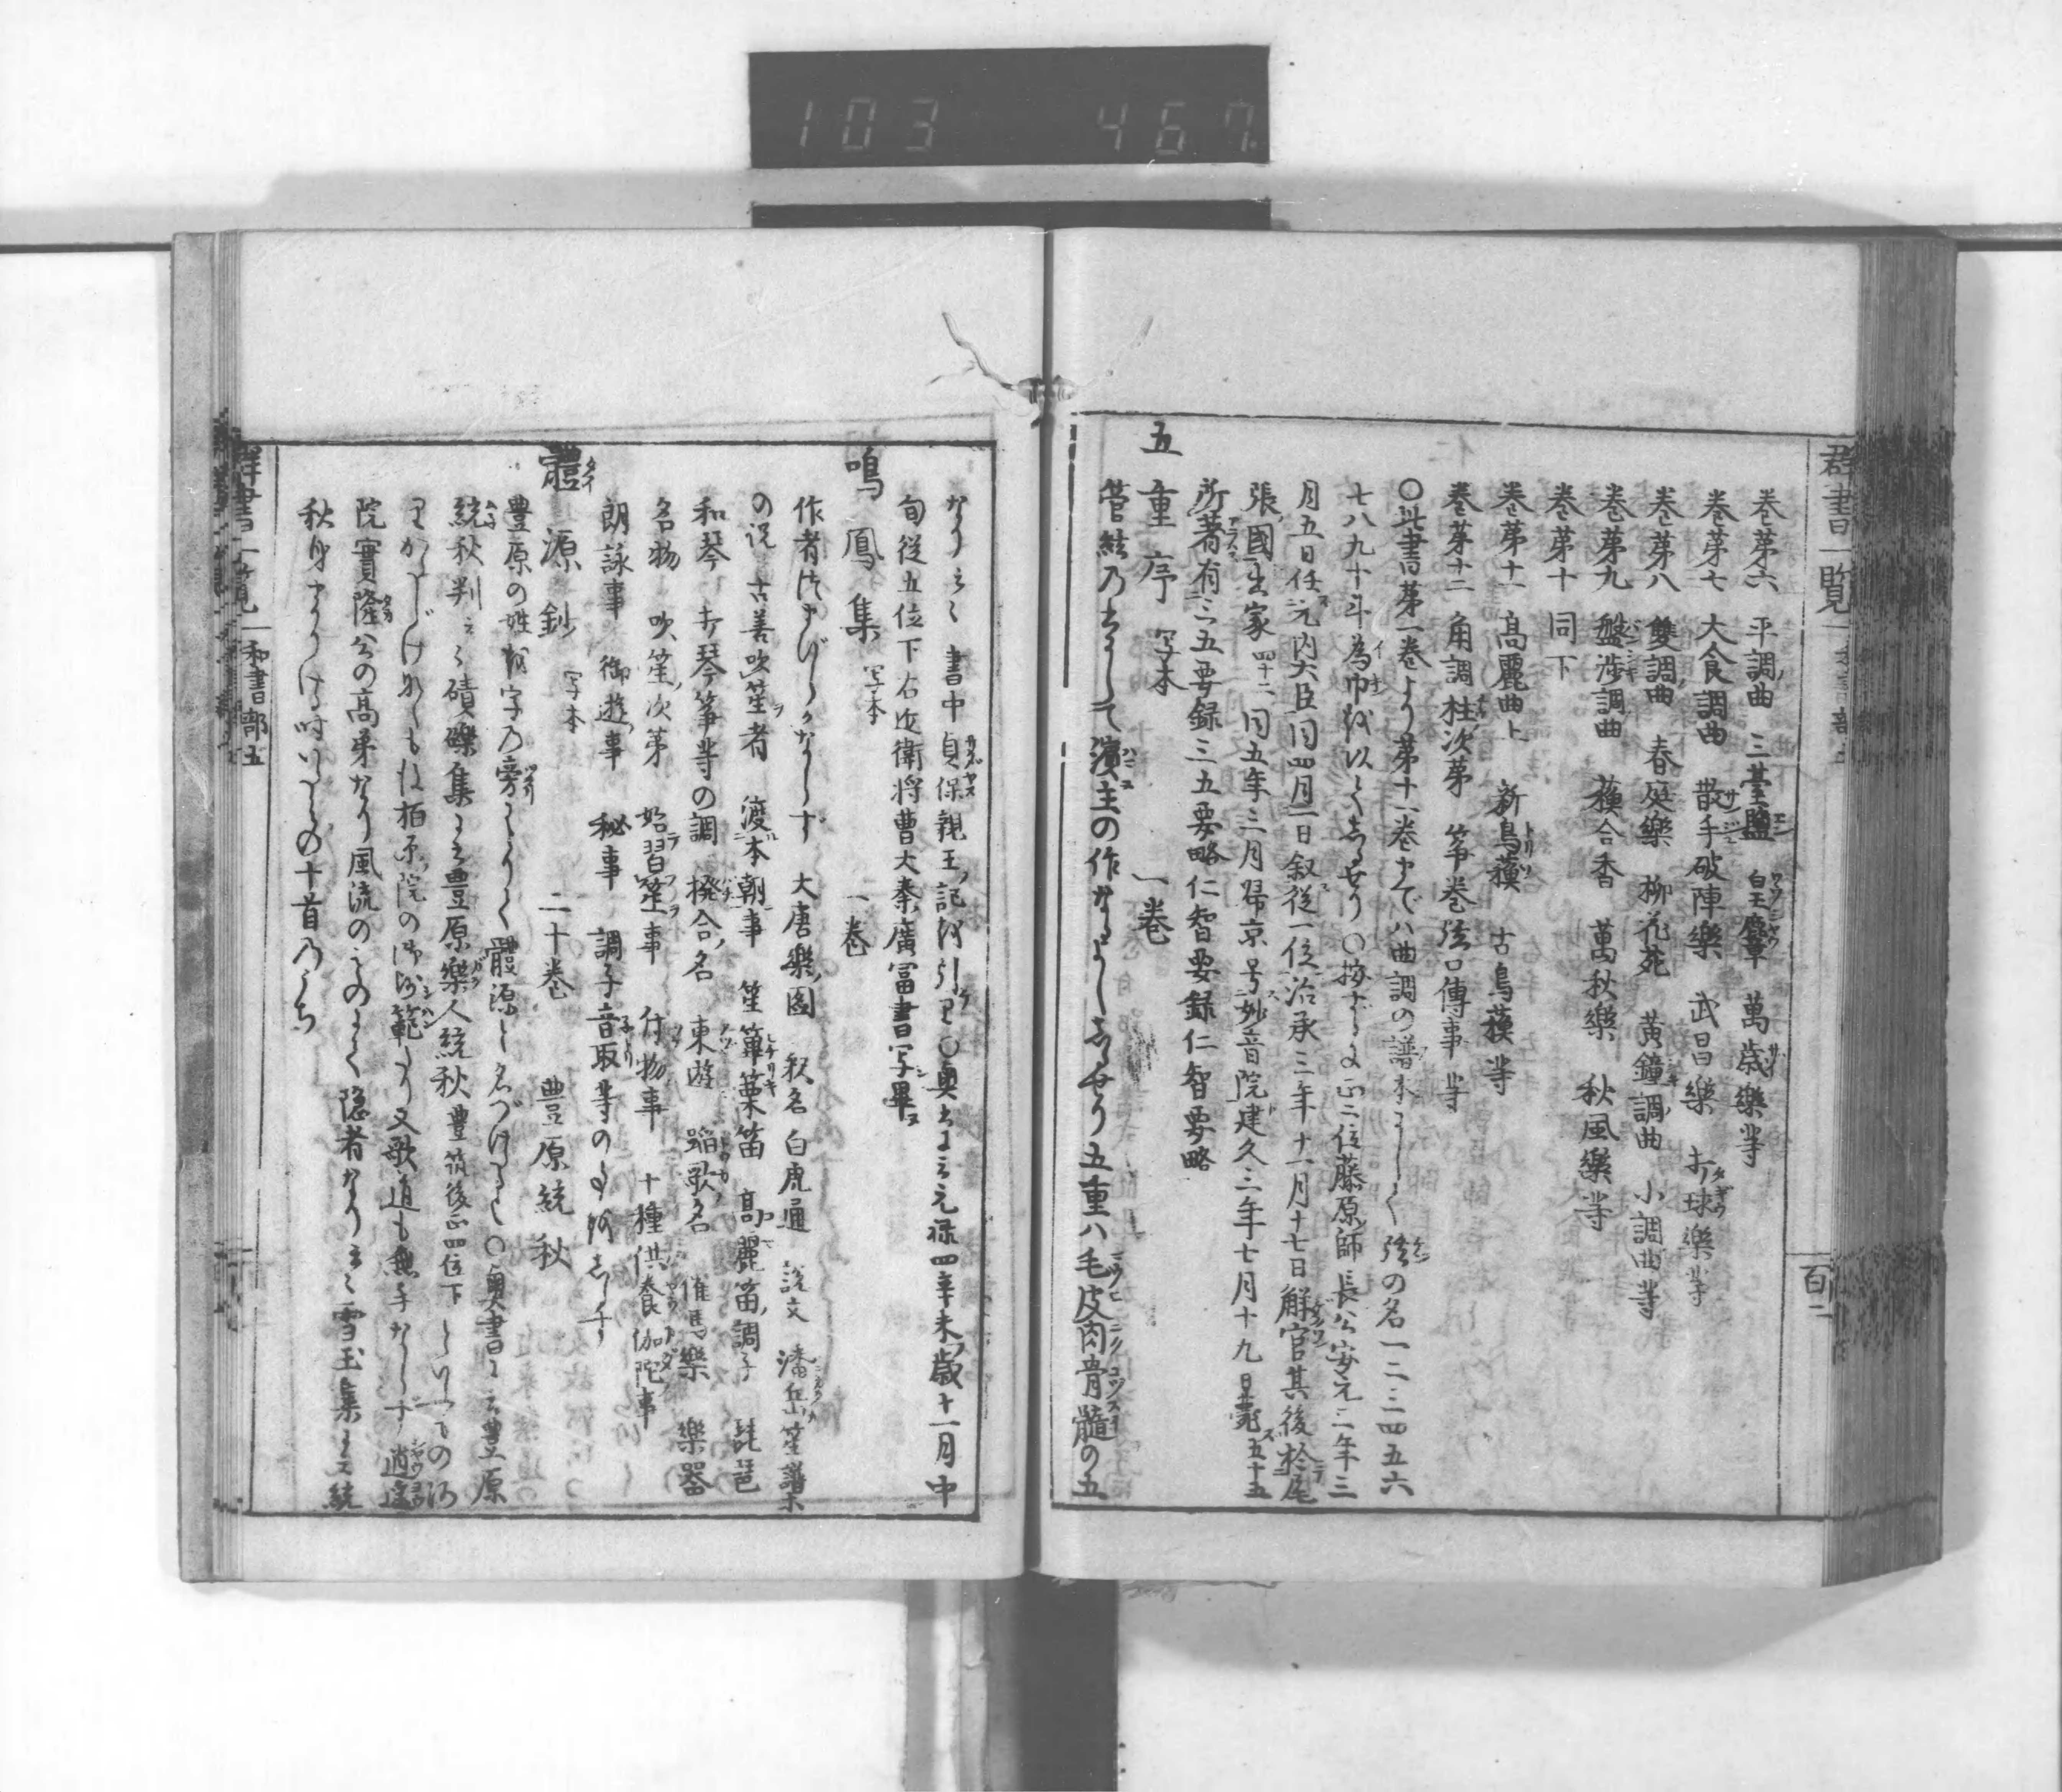 103 467
群書一覧
百二
巻第六 平調曲 三臺鹽 皇麞 萬歳樂等
巻第七 大食調曲 散手破陣樂 武昌樂 打球樂等
巻第八 雙調曲 春庭樂 柳花苑 黄鐘調曲 小調曲等
巻第九 盤渉調曲 蘇合香 萬秋樂 秋風樂等
巻第十 同下
巻第十一 高麗曲上 新鳥蘇 古鳥蘇等
巻第十二 角調 柱次第 箏巻絃口傳事等
〇此書第一巻より第十一巻までハ曲調の譜本にして絃の名一二三四五六
七八九十斗為巾を以てしるせり〇按ずるに正二位藤原師長公安元三年三
月五日任元内大臣同四月二日叙従一位治承三年十一月十七日解官其後於尾
張國出家四十二同五年三月帰京号妙音院建久三年七月十九日薨五十五
所著有三五要録三五要略仁智要録仁智要略
五重序 写本 一巻
管絃乃書にして濱主の作なるよししるせり五重ハ毛皮肉骨髓の五
なりと云 書中貞保親王記を引り〇奥書に云元禄四辛未歳十一月中
旬従五位下右近衛将曹大秦廣冨書写畢
鳴鳳集 写本 一巻
作者つまびらかならず 大唐樂圖 釈名 白虎通 説文 潘岳笙譜等
の説 古善吹笙者 渡本朝事 笙 篳篥 笛 高麗笛調子 琵琶
和琴 古琴箏等の調 撥合名 東遊 蹈歌名 催馬樂 樂器
名物 吹笙次第 始習笙事 付物事 十種供養伽陀事
朗詠事 御遊事 秘事 調子音取等の事をしるす
體源鈔 写本 二十巻 豊原統秋
豊原の姓を字乃旁にとりて體源と名づけたり〇奥書に云豊原
統秋判と云磧礫集に云豊原樂人統秋豊筑後正四位下といひての
院實隆公の高弟なり風流のものにて隠者なりと云雪玉集に云統
秋身まかりける時いろはの十首乃うち
群書一覧 和書部五